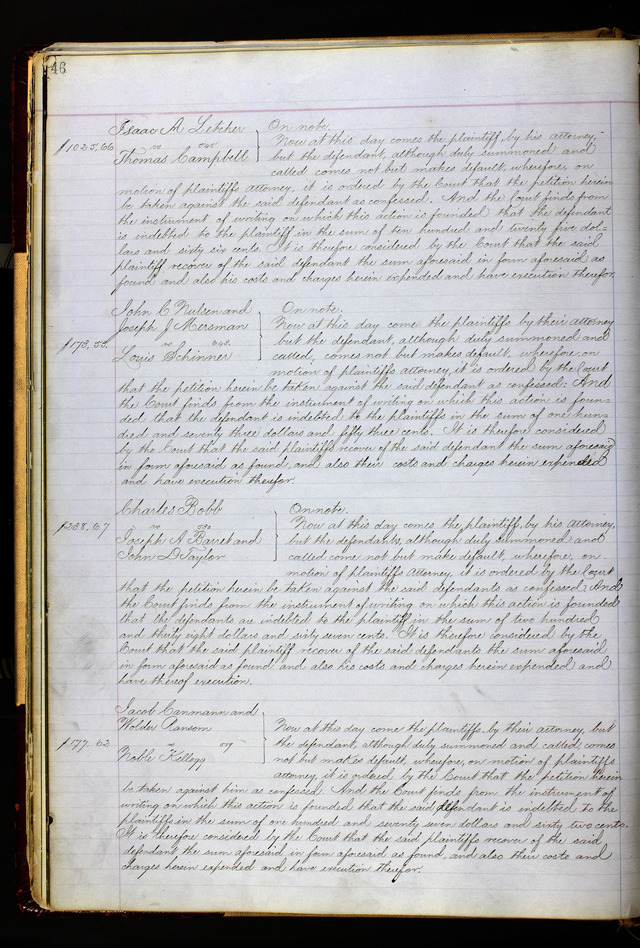 46
Isaac A Letcher On note.
$1025,66 vs Now at this day comes the plaintiff, by his attorney,
Thomas Campbell but the defendant, although duly summoned and
called comes not but makes default, wherefore, on
motion of plaintiffs attorney, it is ordered by the Court that the petition herein
be taken against the said defendant as confessed. And the Court finds from
the instrument of writing on which this action is founded that the defendant
is indebted to the plaintiff in the sum of ten hundred and twenty five dol=
lars and sixty six cents. It is therefore considered by the Court that the said
plaintiff recover of the said defendant the sum aforesaid in form aforesaid as
found and also his costs and charges herein expended and have execution therefor.
John C Nulsen and On note.
Joseph J Mersman Now at this day come the plaintiffs by their attorney
$173,53. vs but the defendant, although duly summoned and
Louis Schinner called, comes not but makes default, wherefore, on
motion of plaintiffs attorney, it is ordered by the Court
that the petition herein be taken against the said defendant as confessed: And
the Court finds from the instrument of writing on which this action is foun=
ded that the defendant is indebted to the plaintiffs in the sum of one hun=
dred and seventy three dollars and fifty three cents. It is therefore considered
by the Court that the said plaintiffs recover of the said defendant the sum aforesaid
in form aforesaid as found, and also their costs and charges herein expended
and have execution therefor.
Charles Bobb On note.
$238,67 vs Now at this day comes the plaintiff, by his attorney,
Joseph A Barret and but the defendants, although duly summoned and
John D Taylor called come not but make default, wherefore, on
motion of plaintiffs attorney, it is ordered by the Court
that the petition herein be taken against the said defendants as confessed. And
the Court finds from the instrument of writing on which this action is founded
that the defendants are indebted to the plaintiff in the sum of two hundred
and thirty eight dollars and sixty seven cents. It is therefore considered by the
Court that the said plaintiff recover of the said defendants the sum aforesaid
in form aforesaid as found and also his costs and charges herein expended and
have thereof execution.
Jacob Canmann and
Wolder Ransom Now at this day come the plaintiffs, by their attorney, but
$177.62 vs the defendant, although duly summoned and called, comes
Noble Kellogg not but makes default, wherefore, on motion of plaintiffs
attorney, it is ordered by the Court that the petition herein
be taken against him as confessed. And the Court finds from the instrument of
writing on which this action is founded that the said defendant is indebted to the
plaintiffs in the sum of one hundred and seventy seven dollars and sixty two cents.
It is therefore considered by the Court that the said plaintiffs recover of the said
defendant the sum aforesaid in form aforesaid as found, and also their costs and
charges herein expended and have execution therefor.